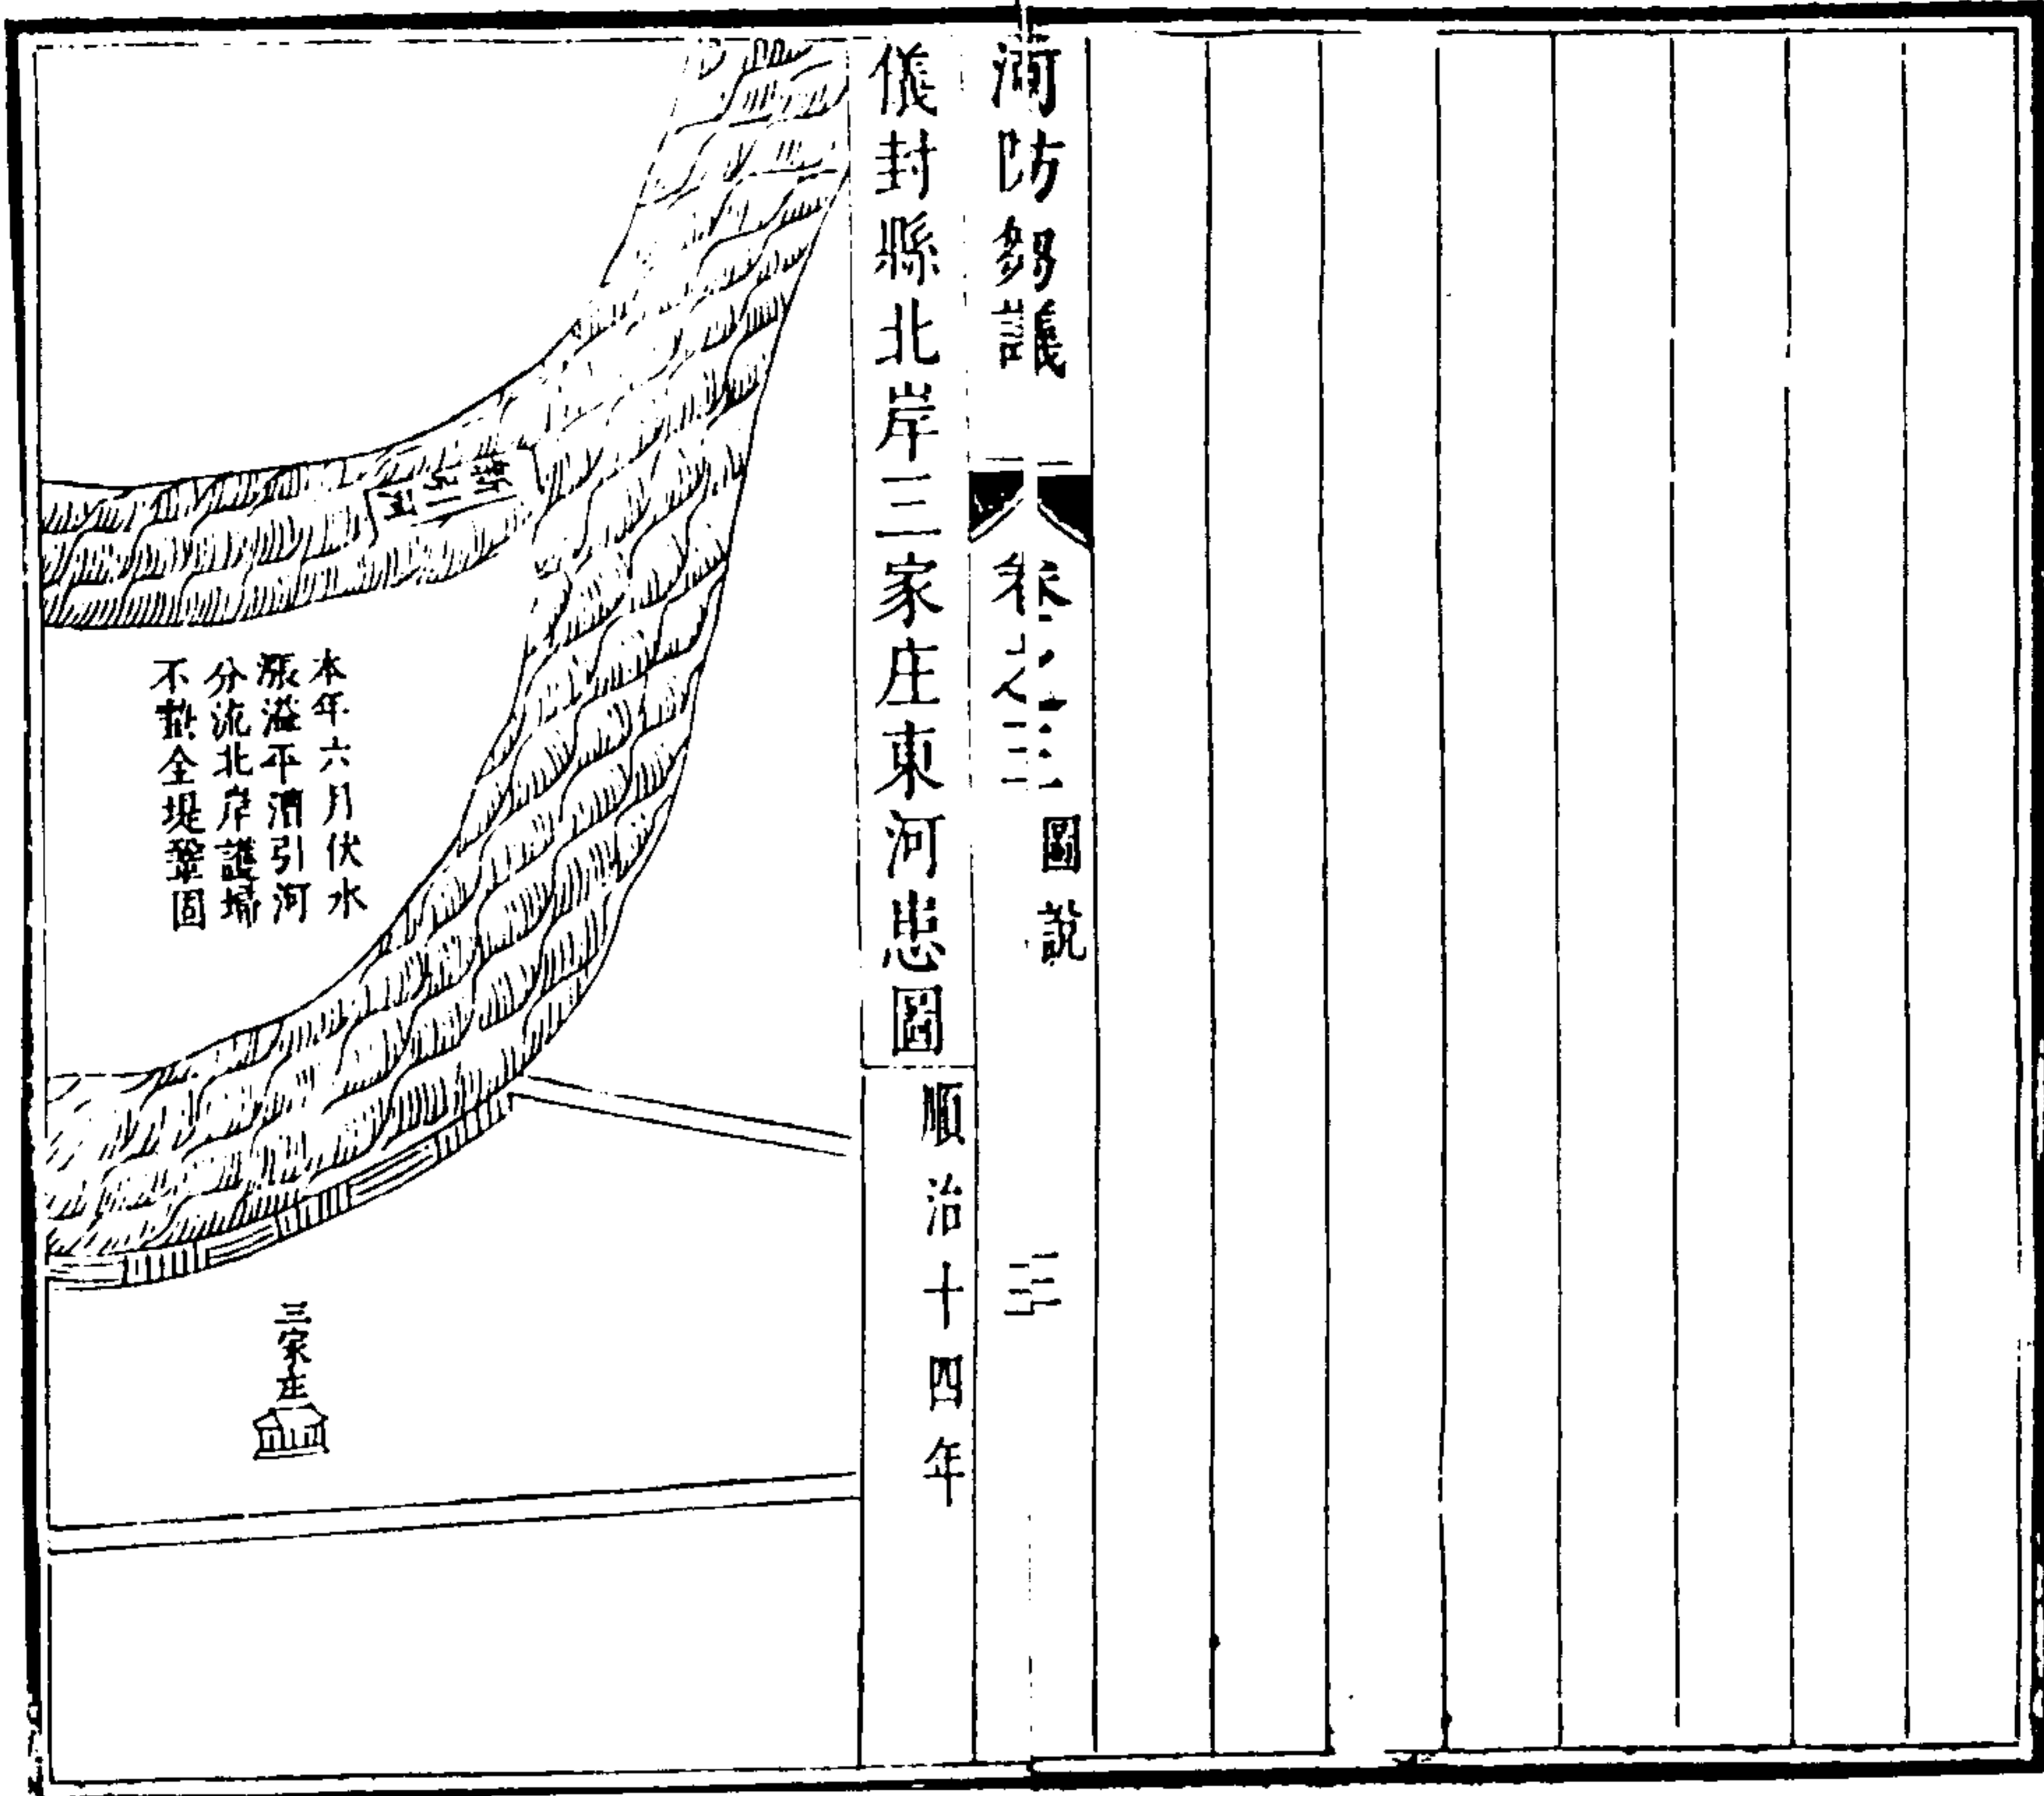 河防芻議
卷之三
圖說
三
儀封縣北岸三家庄東河患圖
順治十四年
本年六月伏水
漲溢平漕引河
分流北岸護埽
不蟄全堤鞏固
三家庄